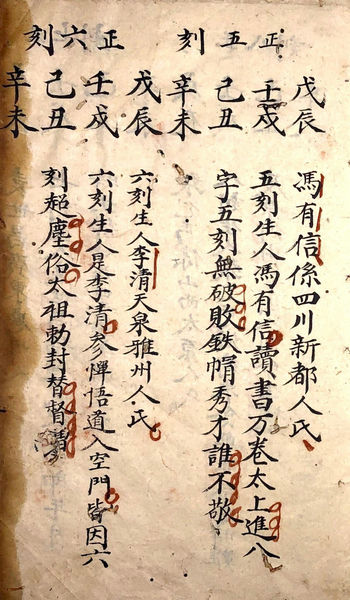 正五刻
戊辰
壬戌
己丑
辛未
馮有信係四川新都人氏
五刻生人馮有信讀書万卷太上進八
字五刻無破敗鉄帽秀才誰不敬
正六刻
戊辰
壬戌
己丑
辛未
六刻生人李清天泉雅州人氏
六刻生人是李清参憚悟道入空門皆因六
刻超塵俗太祖勅封替督清